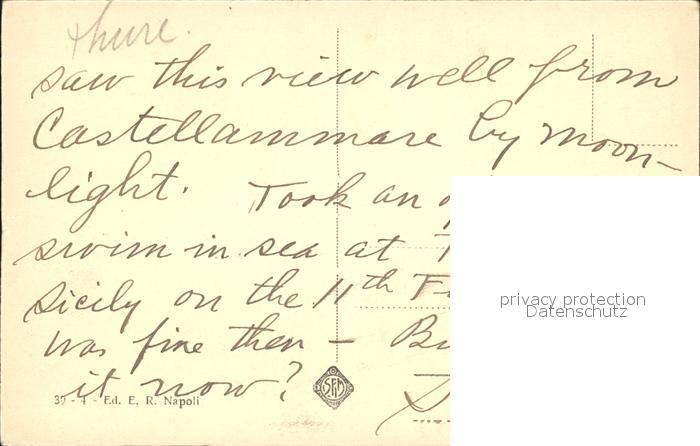 thure.
saw this view well from
Castellammare by moon-
light. Took an
swim in sea at
Sicily on the 11th
was fine then –
it now?
39 - 4 - Ed. E. R. Napoli
SFM
privacy protection
Datenschutz